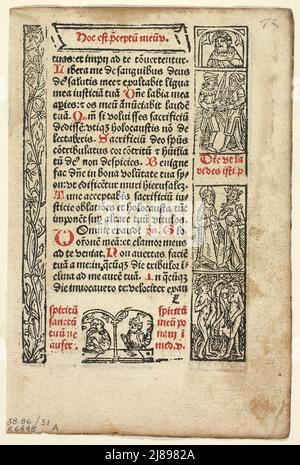 Hoc est p̄ceptū meū v.
tuas: et impij ad te cōuertentur.
Libera me de sanguibus deus
de᷒ salutis mee: et exultabit ligua
mea iusticiā tuā Dn̄e labia mea
apies: et os meū ānūciabit laudē
tuā. Qm̄ si voluisses sacrificiū
dedissē: vtiq̄ holocaustis nō de
lectaberis. Sacrificiū deo spūs
cōtribulatus cor cōtritū et hūilia
tū deus non despicies. Benigne
fac dn̄e in bona volūtate tua sy
on: vt edificētur muri hierusalē.
Tunc acceptabis sacrificiū iu
sticie oblatiōes et holocausta: tūc
imponēt sup altare tuū vitulos.
Domine exaudi ps.
oronē meā: et clamor meus
ad te veniat. Non auertas faciē
tuā a me: in q̄cūq̄ die tribulor i
clina ad me aurē tuā. In q̄cūq̄
die inuocauero te: velociter exau
spiritū
sanctū
tuū ne
aufer
spiritū
meū po
nam i
med. v.
38.86/31
R6448 A